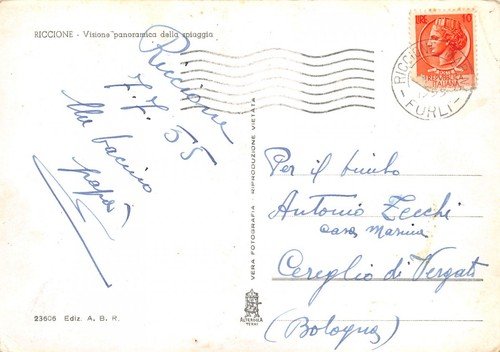 RICCIONE - Visione panoramica della spiaggia
Riccione
7.7.55
Un bacino
papà
LIRE 10
FORLI
VERA FOTOGRAFIA - RIPRODUZIONE VIETATA
Per il bimbo
Antonio Zecchi
casa Marina
Cereglio di Vergato
(Bologna)
23606 Ediz. A. B. R.
ALTEROCCA
TERNI